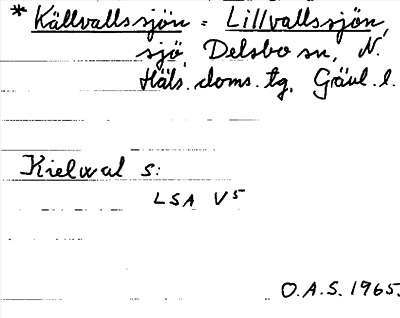 * Källvallssjön = Lillvallssjön,
sjö, Delsbo sn, N.
Häls. doms. tg, Gävl. l.
Kielwal s:
LSA V5
O.A.S. 1965.